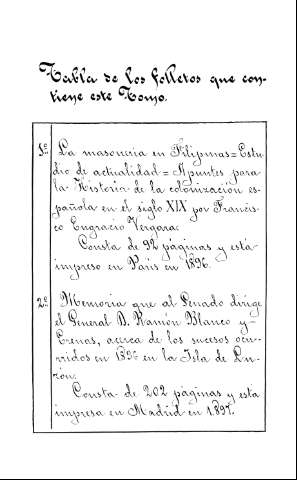 Tabla de los folletos que con-
tiene este Tomo.
1º La masoneria en Filipinas=Estu-
dio de actualidad=Apuntes para
la Historia de la colonización es-
pañola en el siglo XIX por Francis-
co Engracio Vergara.
Consta de 92 páginas y está
impreso en Paris en 1896.
2º Memoria que al Senado dirige
el General D. Ramón Blanco y
Erenas, acerca de los sucesos ocu-
rridos en 1896 en la Isla de Lu-
zón.
Consta de 202 páginas y está
impresa en Madrid en 1897.